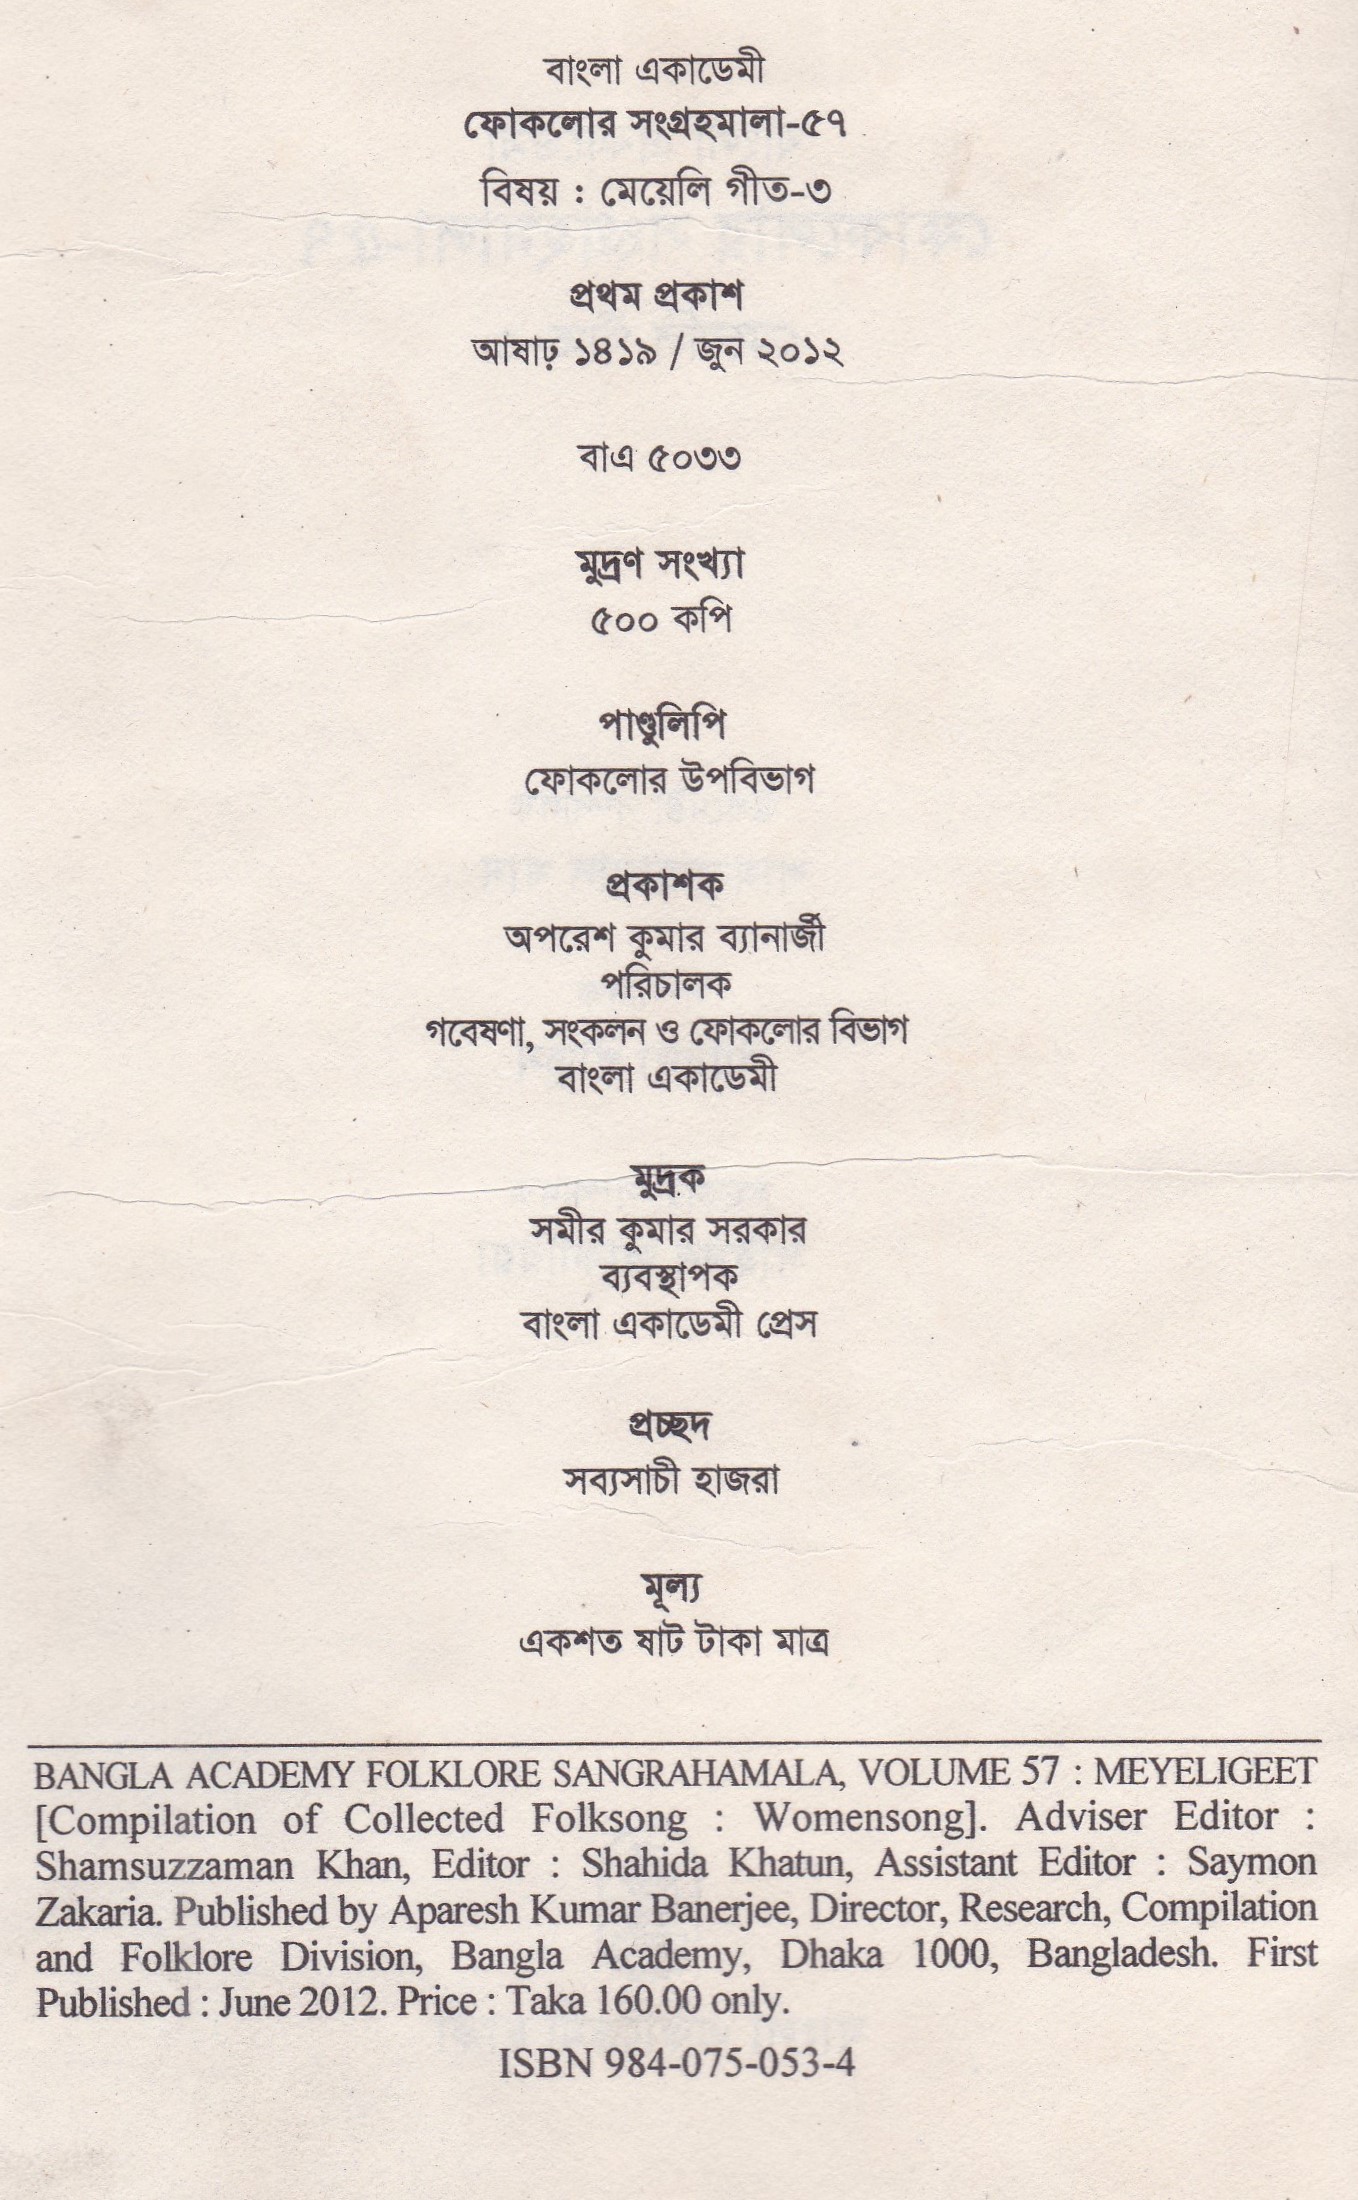 বাংলা একাডেমী
ফোকলোর সংগ্রহমালা-৫৭
বিষয় : মেয়েলি গীত-৩
প্রথম প্রকাশ
আষাঢ় ১৪১৯ / জুন ২০১২
বাএ ৫০৩৩
মুদ্রণ সংখ্যা
৫০০ কপি
পাণ্ডুলিপি
ফোকলোর উপবিভাগ
প্রকাশক
অপরেশ কুমার ব্যানার্জী
পরিচালক
গবেষণা, সংকলন ও ফোকলোর বিভাগ
বাংলা একাডেমী
মুদ্রক
সমীর কুমার সরকার
ব্যবস্থাপক
বাংলা একাডেমী প্রেস
প্রচ্ছদ
সব্যসাচী হাজরা
মূল্য
একশত ষাট টাকা মাত্র
BANGLA ACADEMY FOLKLORE SANGRAHAMALA, VOLUME 57 : MEYELIGEET
[Compilation of Collected Folksong : Womensong]. Adviser Editor :
Shamsuzzaman Khan, Editor : Shahida Khatun, Assistant Editor : Saymon
Zakaria. Published by Aparesh Kumar Banerjee, Director, Research, Compilation
and Folklore Division, Bangla Academy, Dhaka 1000, Bangladesh. First
Published : June 2012. Price : Taka 160.00 only.
ISBN 984-075-053-4